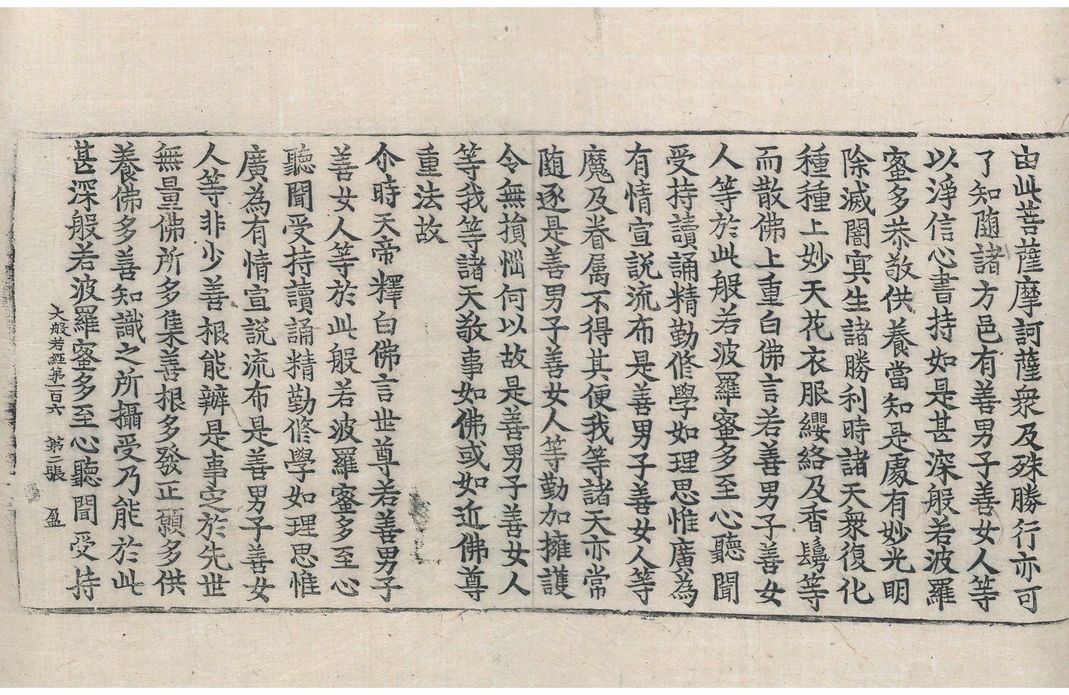 由此菩薩摩訶薩衆及殊勝行亦可
了知随諸方邑有善男子善女人等
以淨信心書持如是甚深般若波羅
蜜多恭敬供養當知是處有妙光明
除滅闇冥生諸勝利時諸天衆復化
種種上妙天花衣服纓絡及香鬘等
而散佛上重白佛言若善男子善女
人等於此般若波羅蜜多至心聽聞
受持讀誦精勤修學如理思惟廣為
有情宣說流布是善男子善女人等
魔及眷属不得其便我等諸天亦常
随逐是善男子善女人等勤加擁護
令無損惱何以故是善男子善女人
等我等諸天敬事如佛或如近佛尊
重法故
尒時天帝釋白佛言世尊若善男子
善女人等於此般若波羅蜜多至心
聽聞受持讀誦精勤修學如理思惟
廣為有情宣說流布是善男子善女
人等非少善根能辦是事定於先世
無量佛所多集善根多發正願多供
養佛多善知識之所攝受乃能於此
甚深般若波羅蜜多至心聽聞受持
大般若經第一百六 第二張 盈